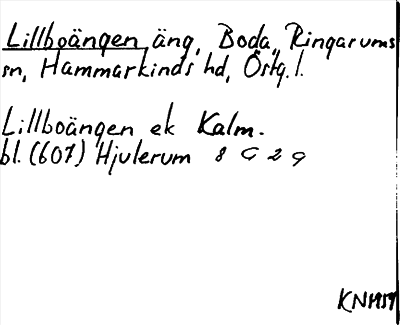 Lillboängen, äng, Boda, Ringarums
sn, Hammarkinds hd, Östg. l.
Lillboängen ek Kalm.
bl. (607) Hjulerum 8 G 2 g